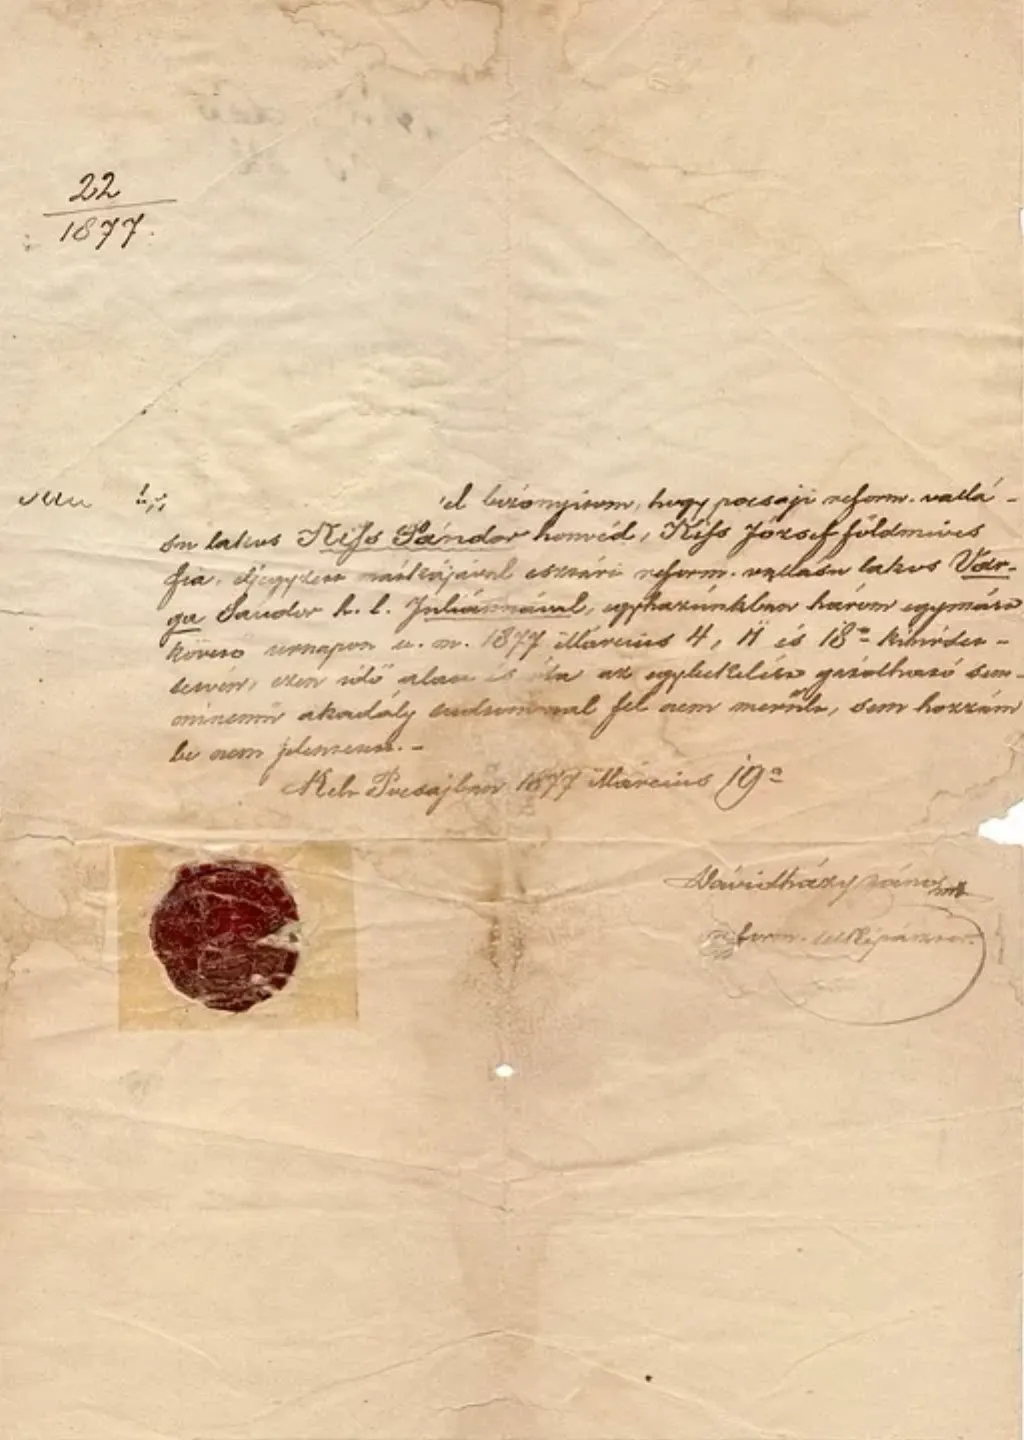 22
1877.
bizonyitom, hogy pocsaji reform. vallá-
su lakos Kiss Sándor honvéd, Kiss József földmives
fia, eljegyzett mátkájával esztári reform. vallásu lakos Var-
ga Sándor h. l. Juliánnával, egyházunkban három egymást
követő urnapon u. m. 1877 Március 4, 11 és 18ᵃⁿ kihirdet-
tetvén, ezen idő alatt és óta az egybekelést gátolható sem-
minemű akadály tudtommal fel nem merült, sem hozzám
be nem jelentetett. -
Kelt Pocsajban 1877 Március 19ᵉⁿ
Dávidházy János
reform. lelkipásztor.